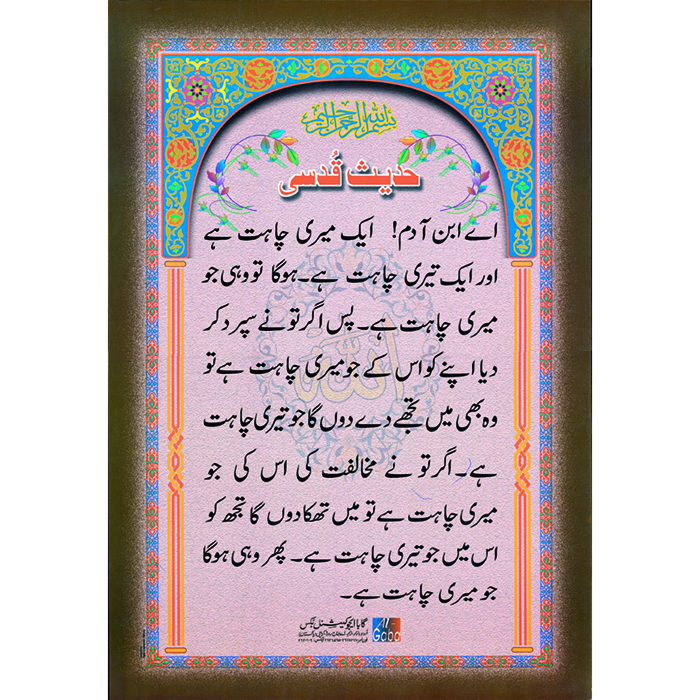 بسم الله الرحمن الرحيم
حدیث قُدسی
اے ابن آدم! ایک میری چاہت ہے
اور ایک تیری چاہت ہے۔ ہوگا تو وہی جو
میری چاہت ہے۔ پس اگر تو نے سپرد کر
دیا اپنے کو اس کے جو میری چاہت ہے تو
وہ بھی میں تجھے دے دوں گا جو تیری چاہت
ہے۔ اگر تو نے مخالفت کی اس کی جو
میری چاہت ہے تو میں تھکا دوں گا تجھ کو
اس میں جو تیری چاہت ہے۔ پھر وہی ہوگا
جو میری چاہت ہے۔
الله
گابا ایجوکیشنل بکس
Gaba